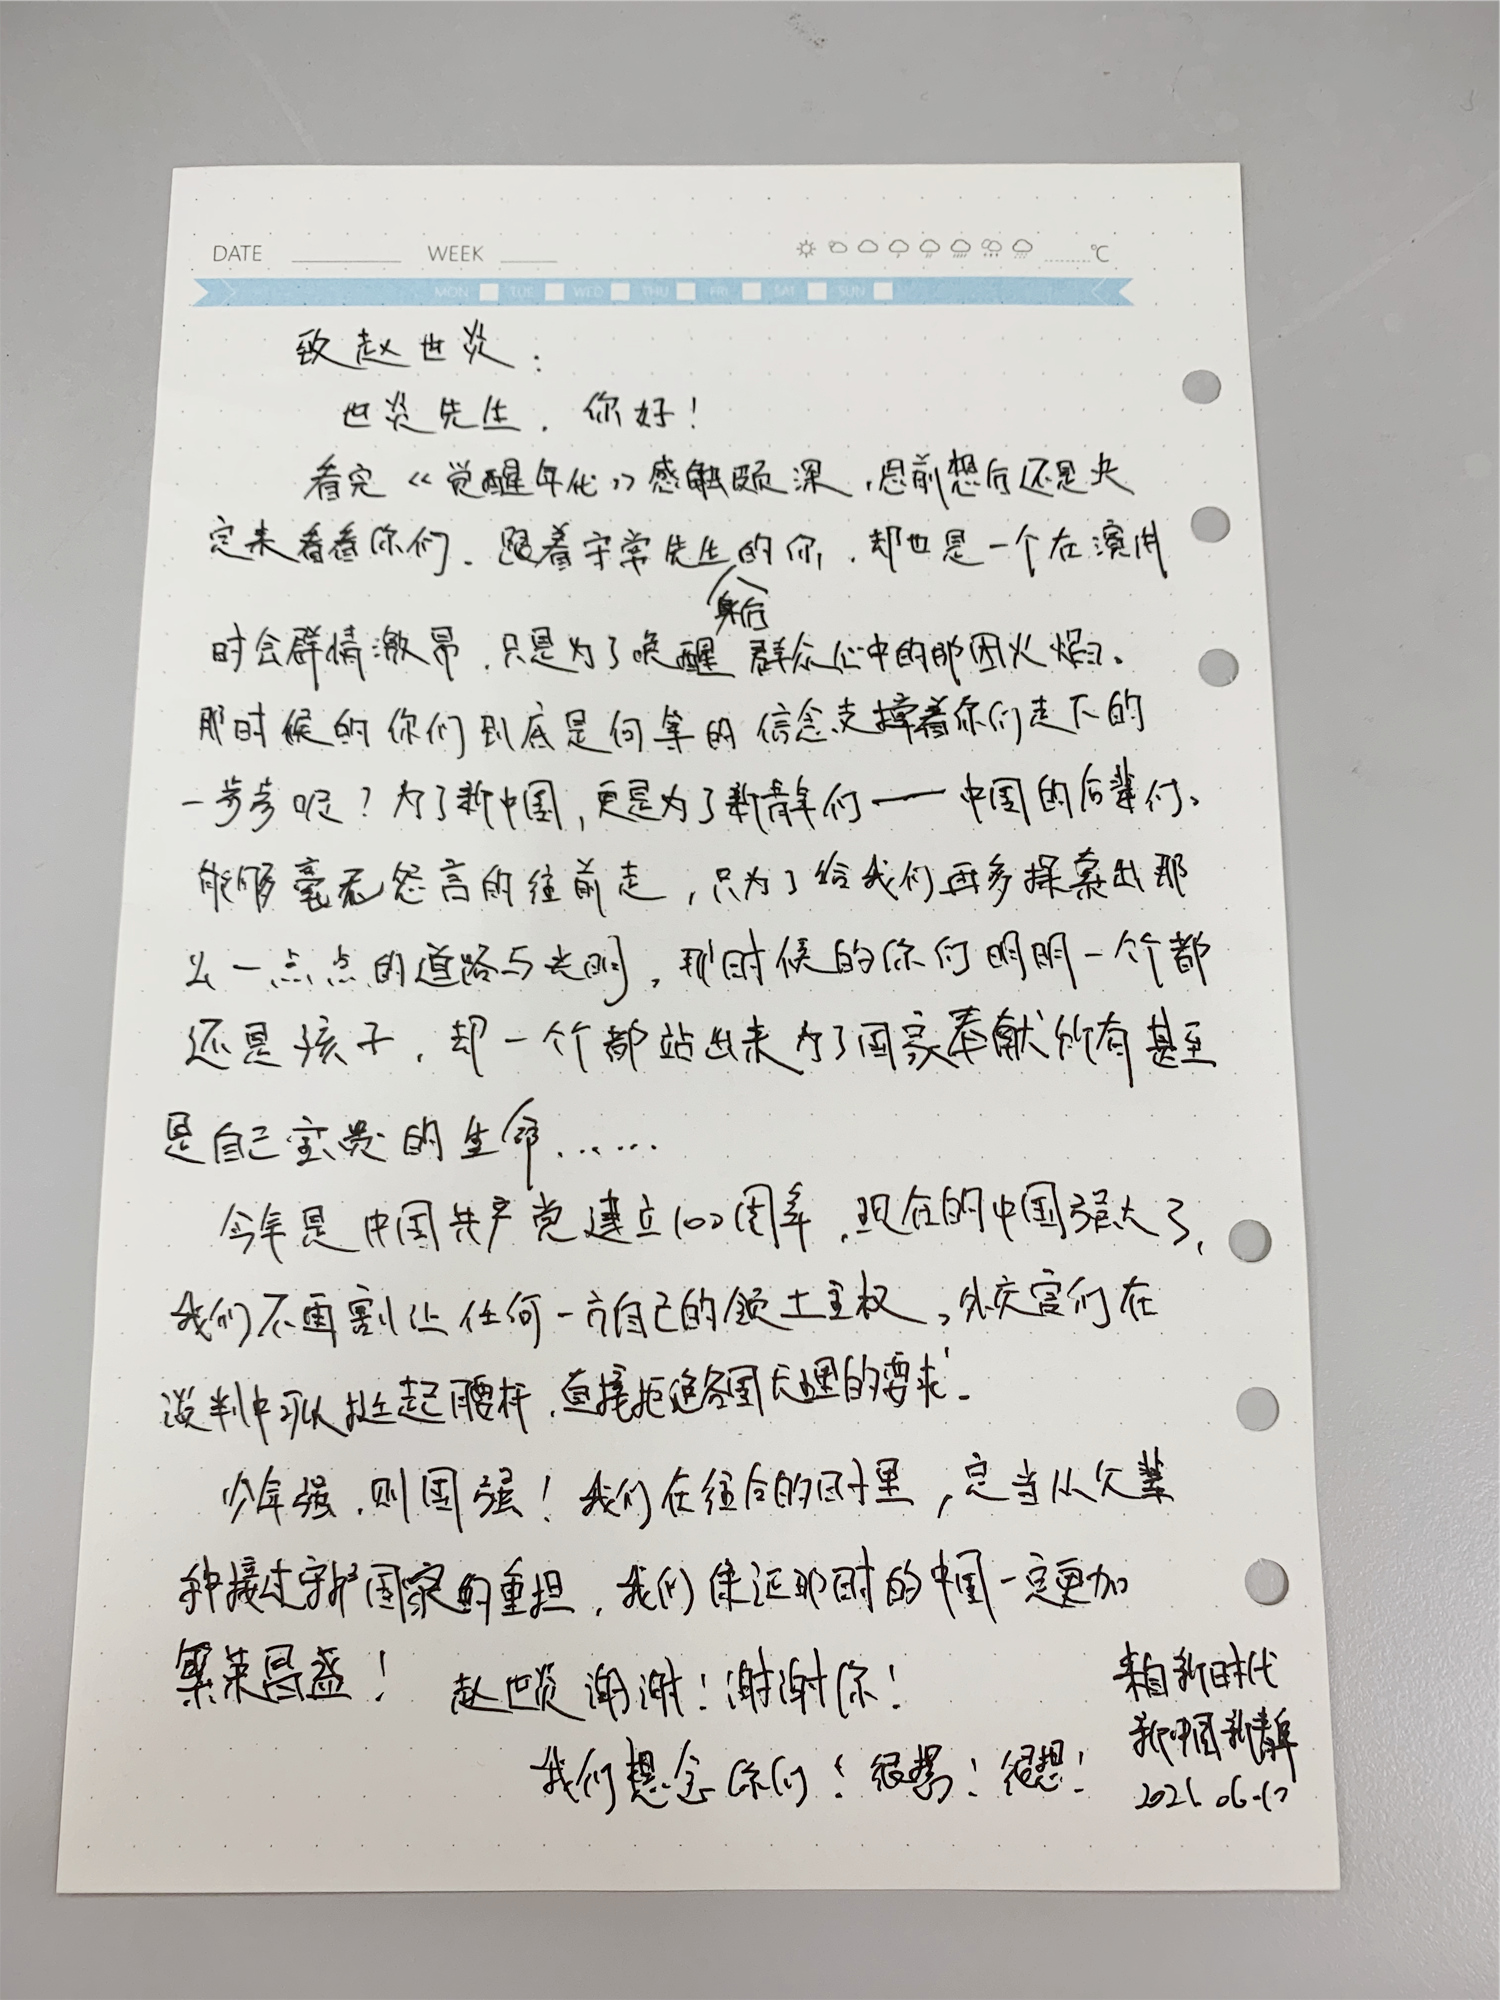 DATE WEEK ℃
MON TUE WED THU FRI SAT SUN
致赵世炎：
世炎先生，你好！
看完《觉醒年代》感触颇深，思前想后还是决
定来看看你们。跟着守常先生身后的你，却也是一个在演讲
时会群情激昂，只是为了唤醒群众心中的那团火焰。
那时候的你们到底是何等的信念支撑着你们走下的
一步步呢？为了新中国，更是为了新青年们——中国的后辈们。
能够毫无怨言的往前走，只为了给我们再多探索出那
么一点点的道路与光明，那时候的你们明明一个个都
还是孩子，却一个个都站出来为了国家奉献所有甚至
是自己宝贵的生命……
今年是中国共产党建立100周年，现在的中国强大了，
我们不再割让任何一方自己的领土主权，外交官们在
谈判中可以挺起腰杆，直接拒绝各国无理的要求。
少年强，则国强！我们在往后的日子里，定当从父辈
手中接过守护国家的重担，我们保证那时的中国一定更加
繁荣昌盛！ 赵世炎谢谢！谢谢你！
我们想念你们！很想！很想！
来自新时代
新中国新青年
2021.06.17